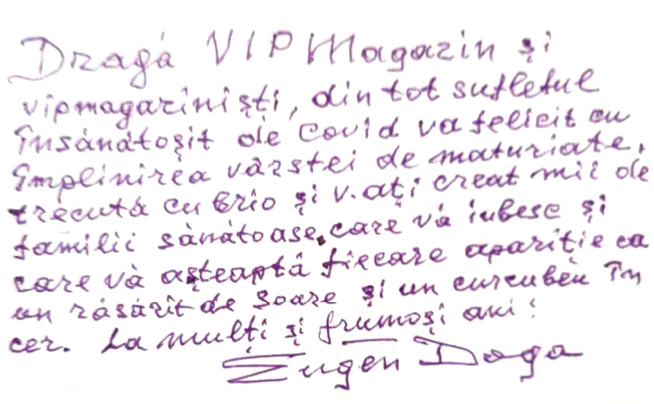 Dragă VIP Magazin și
vipmagaziniști, din tot sufletul
însănătoșit de Covid va felicit cu
împlinirea vârstei de maturiate,
trecută cu brio și v-ați creat mii de
familii sănătoase, care vă iubesc și
care vă așteaptă fiecare apariție ca
un răsărit de soare și un curcubeu în
cer. La mulți și frumoși ani!
Eugen Doga